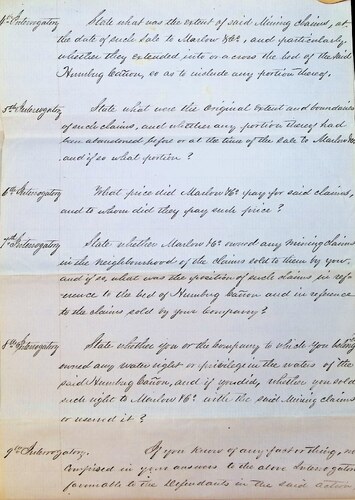 4th Interrogatory State what was the extent of said Mining Claims, at
the date of such sale to Marlow &Co, and particularly
whether they extended into or across the bed of the said
Humbug Cañon, so as to include any portion thereof.
5th Interrogatory State what were the original extent and boundaries
of such claims, and whether any portion thereof had
been abandoned before or at the time of the sale to Marlow &Co
and if so what portion?
6th Interrogatory What price did Marlow &Co pay for said claims,
and to whom did they pay such price?
7th Interrogatory State whether Marlow &Co owned any mining claims
in the neighbourhood of the claims sold to them by you,
and if so, what was the position of such claims in ref-
erence to the bed of Humbug Cañon and in reference
to the claims sold by your Company?
8th Interrogatory State whether you or the company to which you belong
owned any water right or privilege in the waters of the
said Humbug Cañon, and if you did, whether you sold
such right to Marlow &Co with the said Mining claims
or reserved it?
9th Interrogatory. If you know of any fact or thing, not
comprised in your answers to the above Interrogatories
favorable to the Defendants in the said action